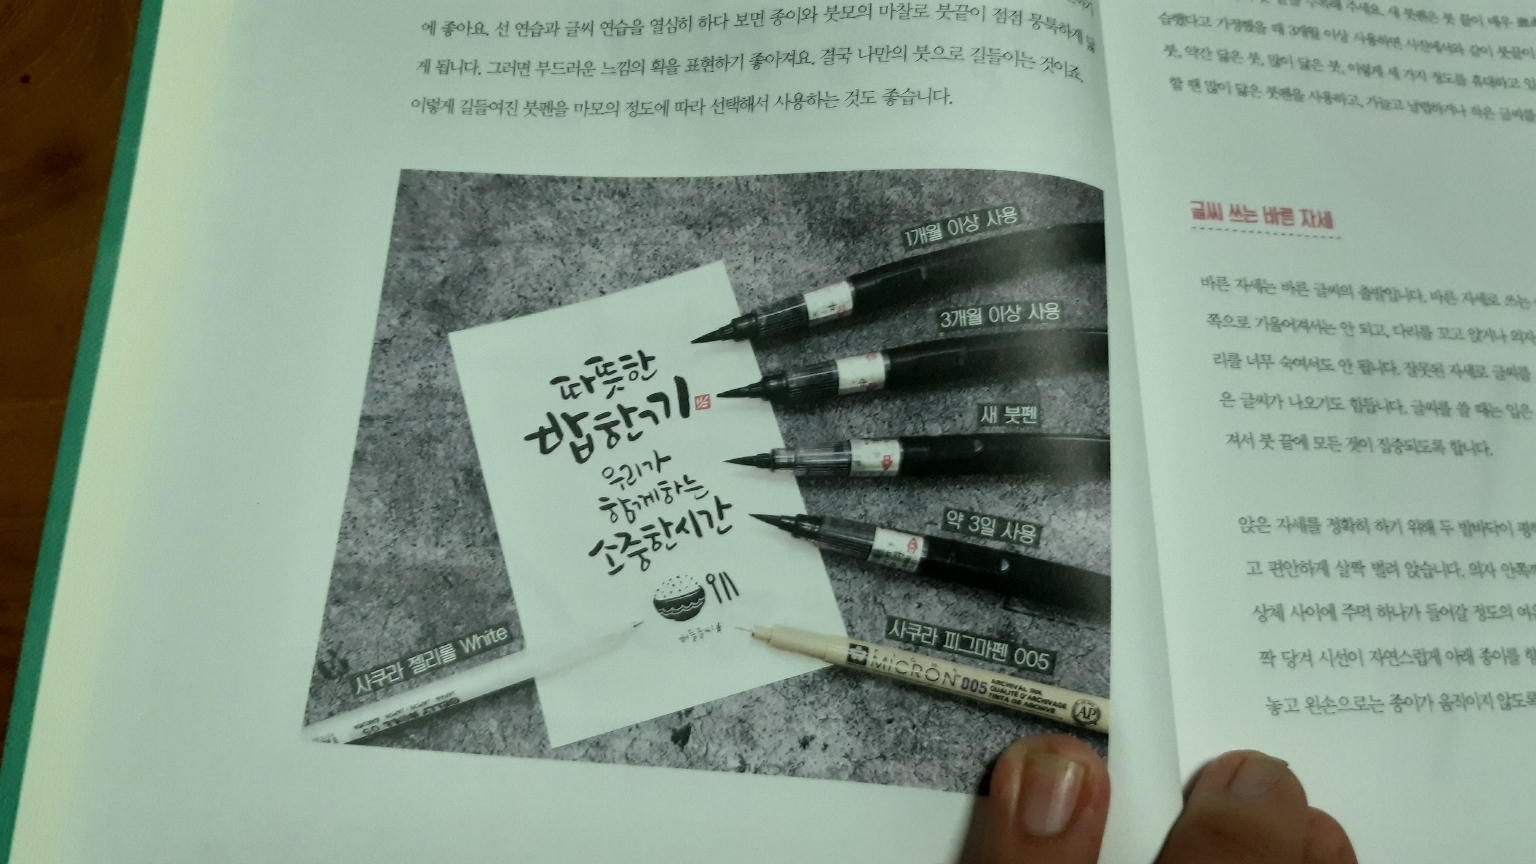 에 좋아요. 선 연습과 글씨 연습을 열심히 하다 보면 종이와 붓모의 마찰로 붓끝이 점점 뭉툭하게
게 됩니다. 그러면 부드러운 느낌의 획을 표현하기 좋아져요. 결국 나만의 붓으로 길들이는 것이죠.
이렇게 길들여진 붓펜을 마모의 정도에 따라 선택해서 사용하는 것도 좋습니다.
1개월 이상 사용
3개월 이상 사용
새 붓펜
약 3일 사용
사쿠라 피그마펜 005
사쿠라 젤리롤 White
따뜻한
밥한끼
우리가
함께하는
소중한시간
MICRON 005
ARCHIVAL INK
AP
습했다고 가정했을 때 3개월 이상 사용하면 사진에서와 같이 붓끝이
붓, 약간 닳은 붓, 많이 닳은 붓, 이렇게 세 가지 정도를 휴대하고
할 땐 많이 닳은 붓펜을 사용하고, 가늘고 날렵하거나 작은 글씨를
글씨 쓰는 바른 자세
바른 자세는 바른 글씨의 출발입니다. 바른 자세로 쓰는
쪽으로 기울어져서는 안 되고, 다리를 꼬고 앉거나 의자
리를 너무 숙여서도 안 됩니다. 잘못된 자세로 글씨를
은 글씨가 나오기도 힘듭니다. 글씨를 쓸 때는 입은
져서 붓 끝에 모든 것이 집중되도록 합니다.
앉은 자세를 정확히 하기 위해 두 발바닥이
고 편안하게 살짝 벌려 앉습니다. 의자 안쪽
상체 사이에 주먹 하나가 들어갈 정도의
짝 당겨 시선이 자연스럽게 아래 종이를
놓고 왼손으로는 종이가 움직이지 않도록